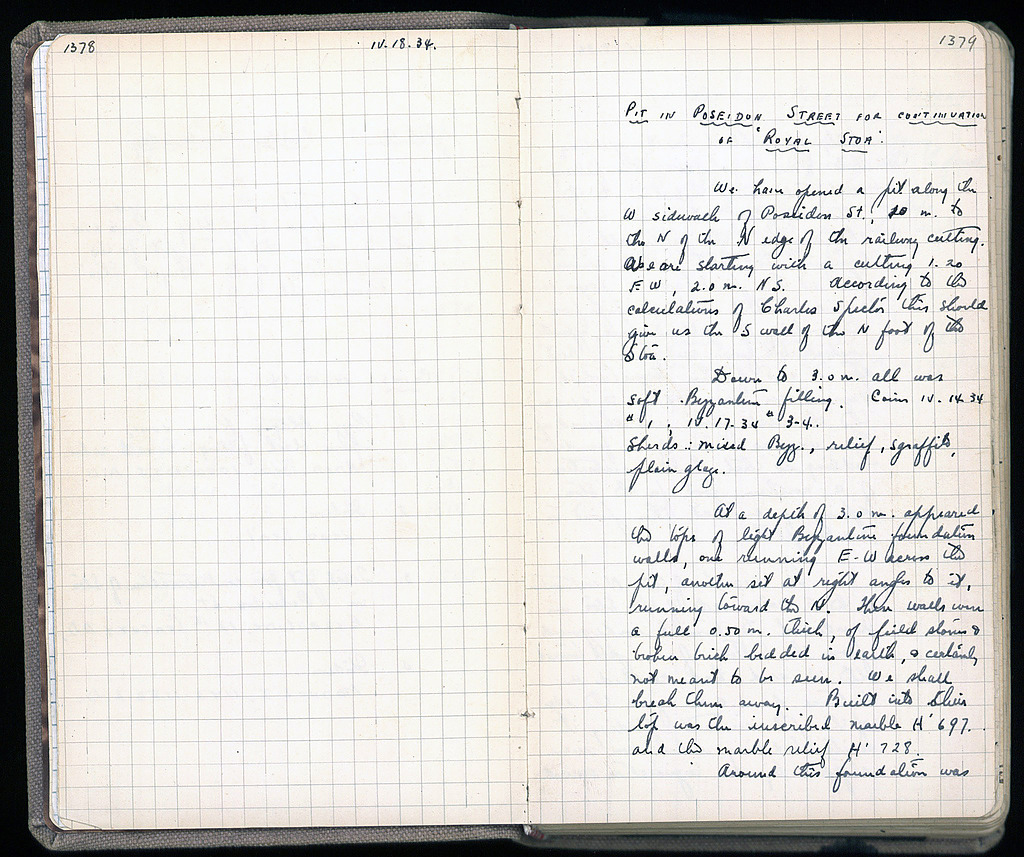 1378
IV. 18. 34.
1379
PIT IN POSEIDON STREET FOR CONTINUATION
OF 'ROYAL STOA'.
We have opened a pit along the
W sidewalk of Poseidon St., 20 m. to
the N of the N edge of the railway cutting.
We are starting with a cutting 1.20
E-W, 2.0 m. N S. According to the
calculations of Charles Spector this should
give us the S wall of the N foot of the
Stoa.
Down to 3.0 m. all was
soft Byzantine filling. Coins IV. 14.34
# 1, IV. 17-34 # 3-4.
Sherds: mixed Byz., relief, sgraffito,
plain glaze.
At a depth of 3.0 m. appeared
the tops of light Byzantine foundation
walls, one running E-W across the
pit, another set at right angles to it,
running toward the N. These walls were
a full 0.50 m. thick, of field stones &
broken brick bedded in earth, & certainly
not meant to be seen. We shall
break them away. Built into their
top was the inscribed marble H' 697.
and the marble relief H' 728.
Around this foundation was